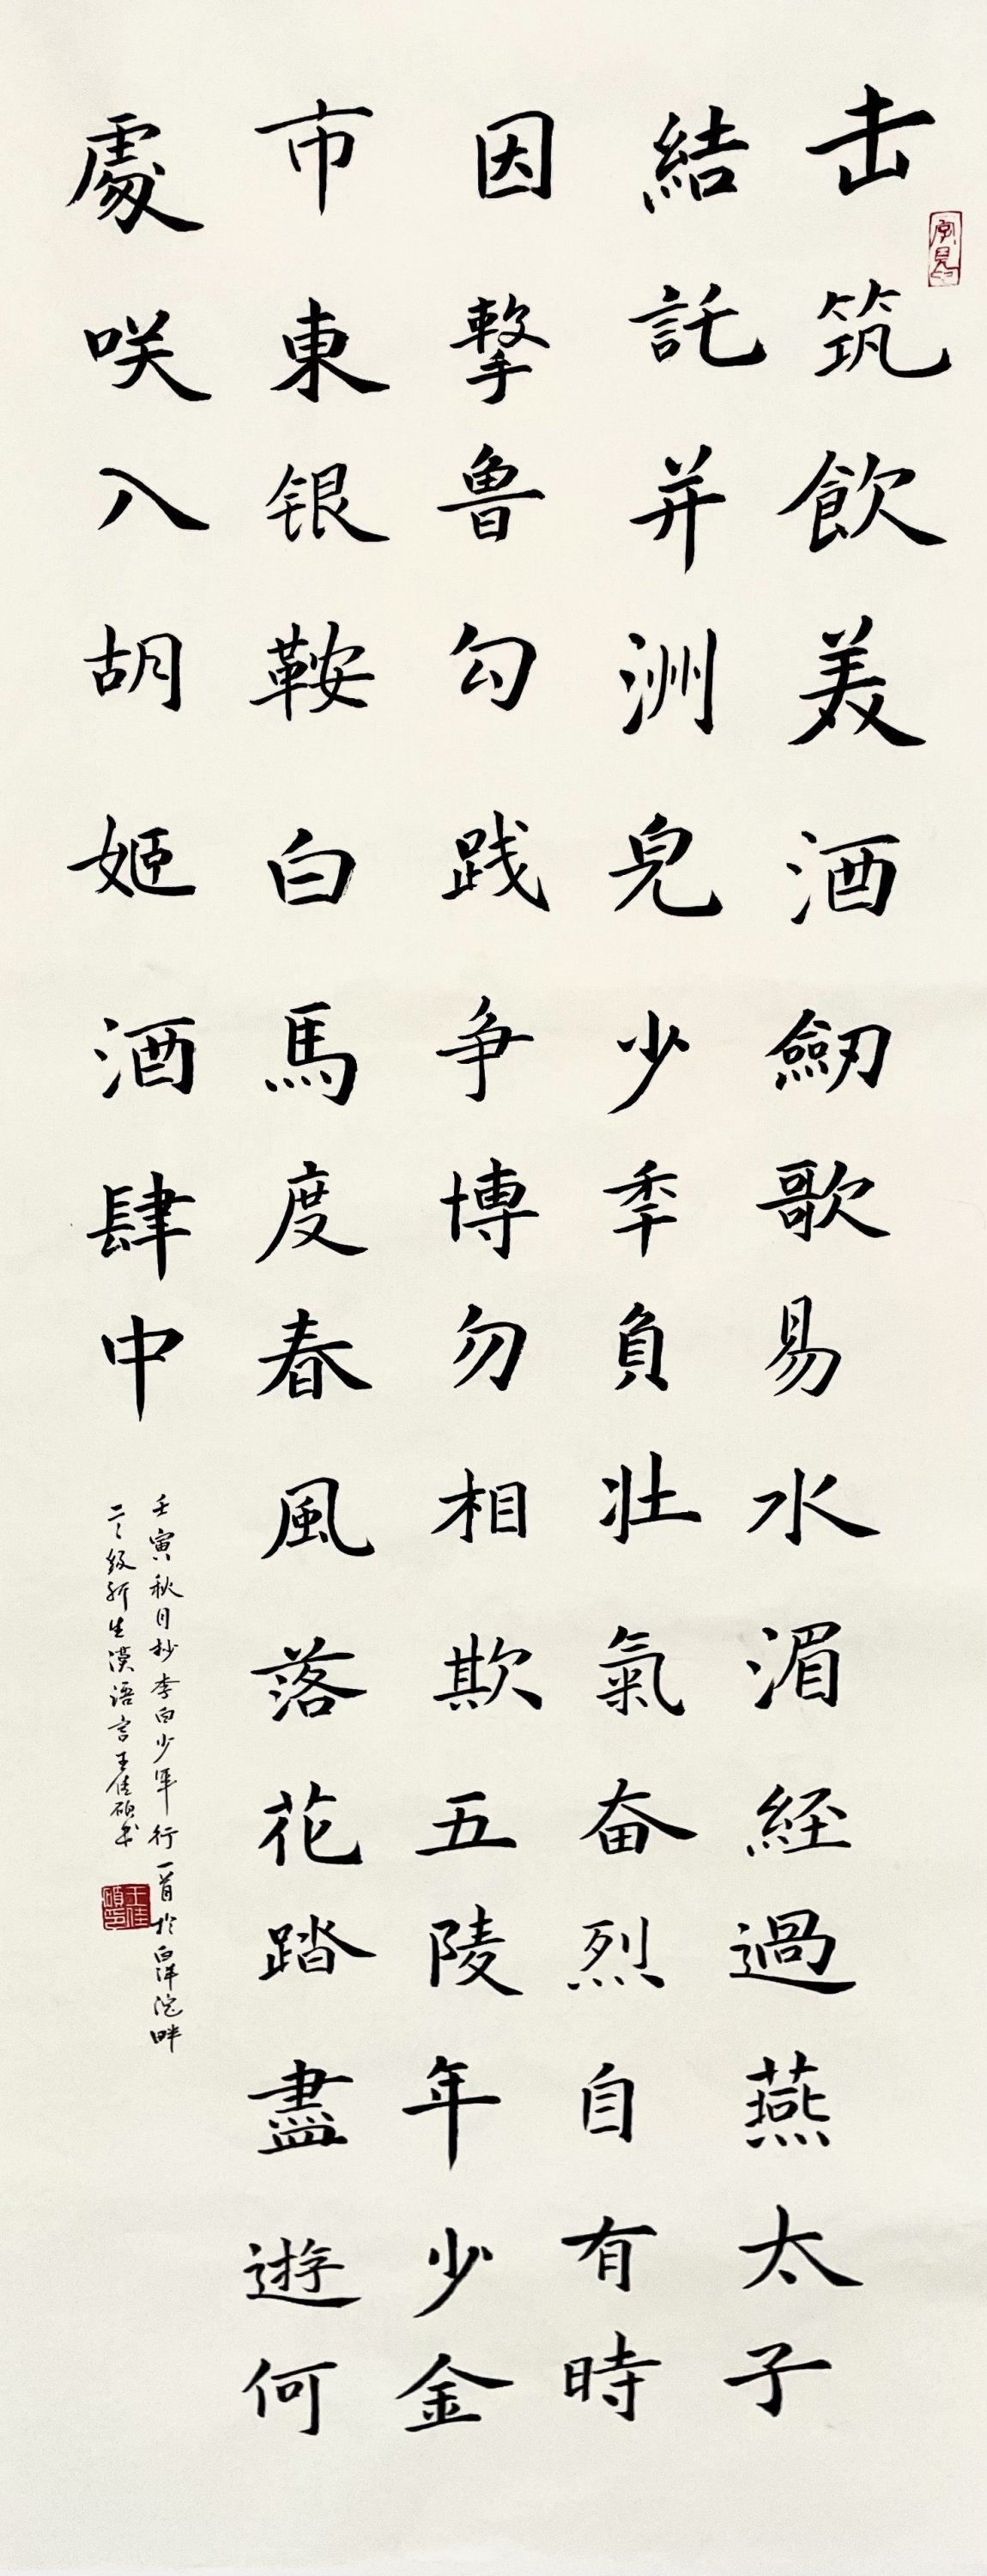 击筑飲美酒劒歌易水湄経過燕太子
結託并洲兒少秊負壯氣奋烈自有時
因擊鲁勾践争博勿相欺五陵年少金
市東银鞍白馬度春風落花踏盡遊何
處咲入胡姬酒肆中
壬寅秋月抄李白少年行一首於白洋淀畔
二〻级新生漢语言王佳硕书
王佳硕印